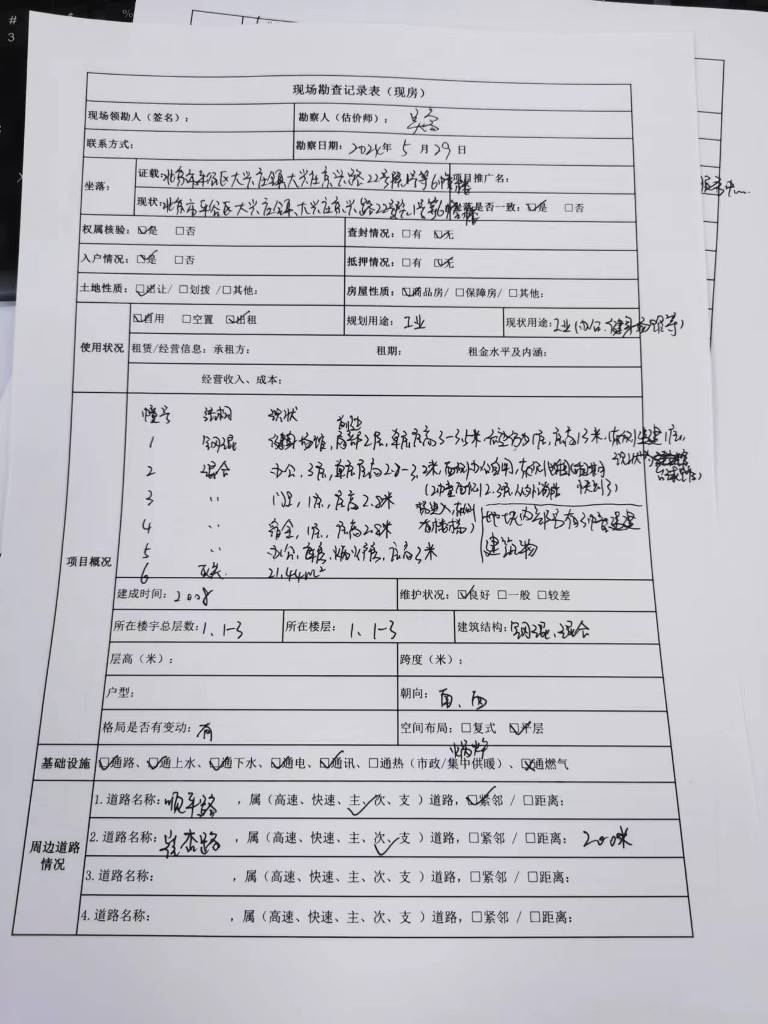 现场勘查记录表（现房）
现场领勘人（签名）： 勘察人（估价师）：
联系方式： 勘察日期：2024年 5 月 29 日
坐落： 证载：北京市平谷区大兴庄镇大兴庄东兴路22号院1号等6幢楼 项目推广名：
现状：北京市平谷区大兴庄镇大兴庄东兴路22号院1号等6幢楼 是否一致：☑是 □否
权属核验：☑是 □否 查封情况：□有 ☑无
入户情况：☑是 □否 抵押情况：□有 ☑无
土地性质：☑出让/ □划拨 /□其他： 房屋性质：☑商品房/ □保障房/ □其他：
使用状况 ☑自用 □空置 ☑出租 规划用途：工业 现状用途：工业（办公、健身场馆等）
租赁/经营信息：承租方： 租期： 租金水平及内涵：
经营收入、成本：
项目概况
幢号 结构 现状
1 钢混 健身场馆，局部2层，单层层高3-3.5米 1层，层高13米
2 混合 办公，3层，单层层高2.8-3.2米
3 〃 门卫，1层，层高2.8米
4 〃 宿舍，1层，层高2.8米 地块内部另有
5 〃 办公、车库、锅炉房，层高3米 建筑物
6 21.44m²
建成时间：2008 维护状况：☑良好 □一般 □较差
所在楼宇总层数：1、1-3 所在楼层：1、1-3 建筑结构：钢混、混合
层高（米）： 跨度（米）：
户型： 朝向：南、西
格局是否有变动：有 空间布局：□复式 ☑平层
锅炉
基础设施 ☑通路、☑通上水、☑通下水、☑通电、☑通讯、□通热（市政/集中供暖）、☒通燃气
周边道路情况
1.道路名称：顺平路 ，属（高速、快速、主、次、支 ）道路，☑紧邻 / □距离：
2.道路名称：崔杏路 ，属（高速、快速、主、次、支 ）道路，□紧邻 / □距离： 200米
3.道路名称： ，属（高速、快速、主、次、支 ）道路，□紧邻 / □距离：
4.道路名称： ，属（高速、快速、主、次、支 ）道路，□紧邻 / □距离：